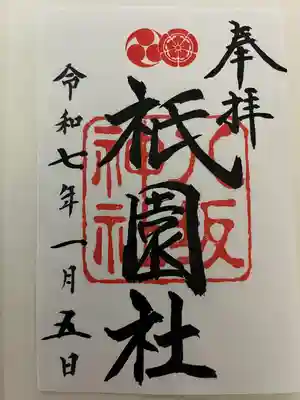 奉拝
祇園社
八坂神社
令和七年一月五日